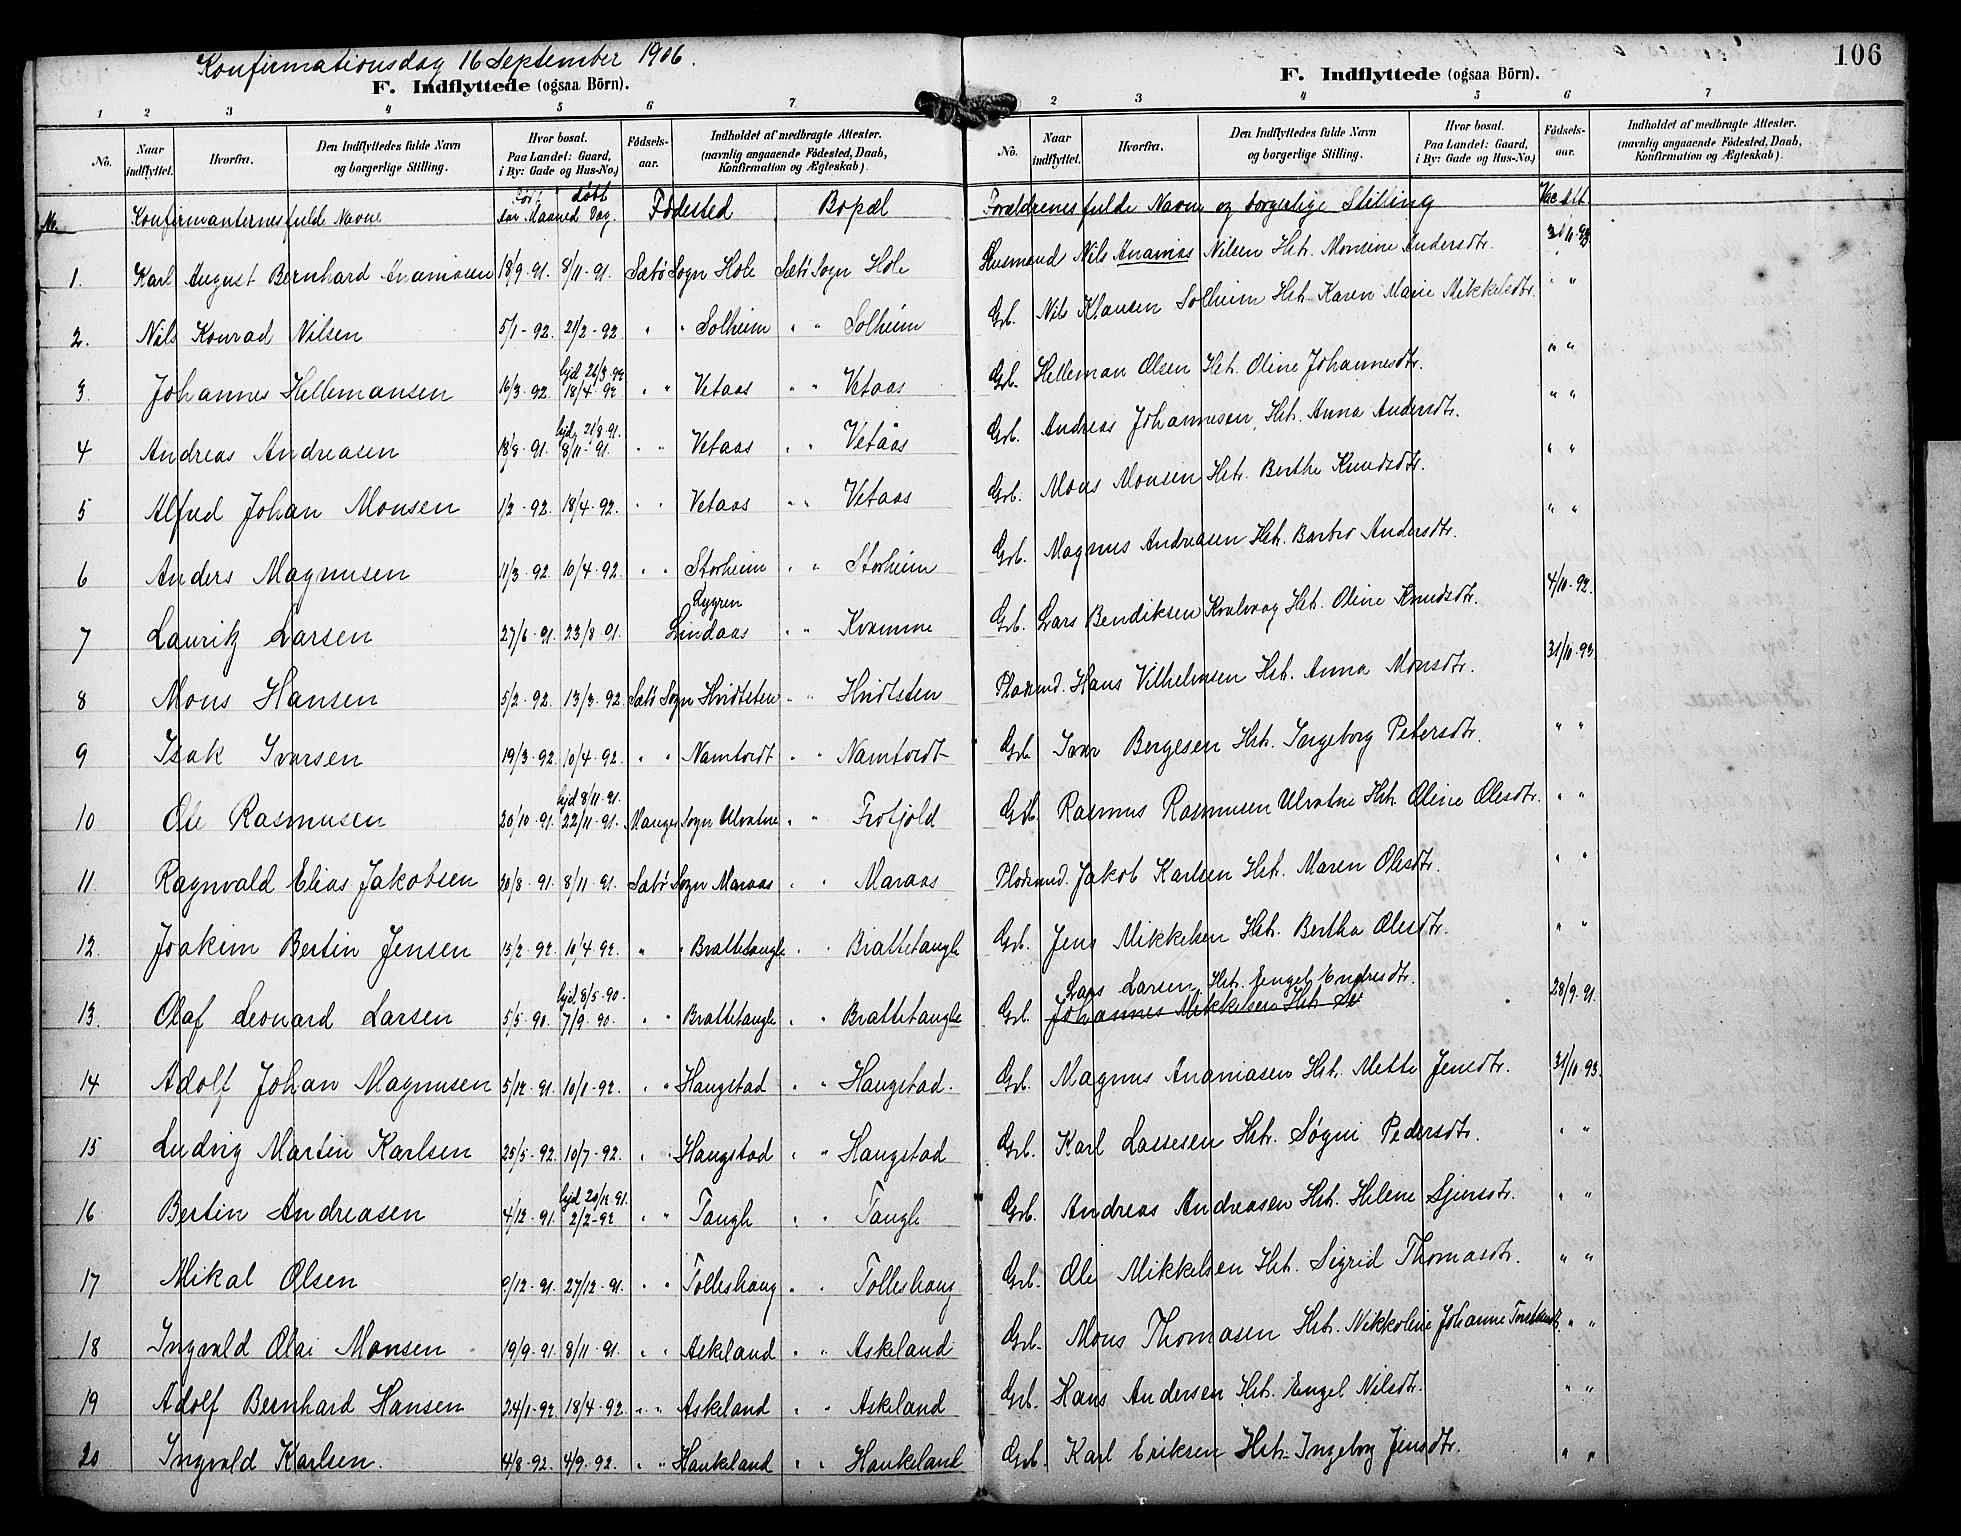 Konfirmationsdag 16 September 1906.
F. Indflyttede (ogsaa Börn).
1 2 3 4 5 6 7
No. Naar indflyttet. Hvorfra. Den Indflyttedes fulde Navn og borgerlige Stilling. Hvor bosat. Paa Landet: Gaard, i By: Gade og Hus-No.) Födsels-aar. Indholdet af medbragte Attester. (navnlig angaaende Födested, Daab, Konfirmation og Ægteskab).
No. Konfirmanternes fulde Navne døbt Aar Maaned Dag. Fødested Bopæl
1. Karl August Bernhard Ananiasen 18/9-91. 8/11-91. Sætbø Sogn Hole Sætbø Sogn Hole
2. Nils Konrad Nilsen 5/1-92. 21/2-92. " " Solheim " " Solheim
3 Johannes Hellemansen 16/3-92. hjd. 26/3.92 18/4-92 " " Vetaas " " Vetaas
4 Andreas Andreasen 18/8-91. hjd. 21/8.91. 8/11-91. " " Vetaas " " Vetaas
5 Alfred Johan Monsen 1/2-92. 18/4-92. " " Vetaas " " Vetaas
6 Anders Magnusen 11/3-92. 10/4-92. " " Storheim " " Storheim
7 Lauritz Larsen 27/6-91. 23/8-91. Lygren Lindaas " " Kvamme
8 Mons Hansen 5/2-92. 13/3-92. Sætbø Sogn Hvidtsten " " Hvidtsten
9 Isak Ivarsen 19/3-92. 10/4-92. " " Namtvedt " " Namtvedt
10 Ole Rasmusen 20/10-91. hjd 8/11-91. 22/11-91. Manger Sogn Ulvatne " " Frotjold
11 Ragnvald Elias Jakobsen 20/8-91. 8/11-91. Sætbø Sogn Maraas " " Maraas
12. Joakim Bertin Jensen 15/2-92. 10/4-92. " " Brattetangle " " Brattetangle
13. Olaf Leonard Larsen 5/5-90. hjd, 8/5-90. 7/9-90. " " Brattetangle " " Brattetangle
14 Adolf Johan Magnusen 5/12-91. 10/1-92. " " Haugstad " " Haugstad.
15 Ludvig Martin Karlsen 25/5-92. 10/7-92. " " Haugstad " " Haugstad
16 Bertin Andreasen 4/12-91. hjd 20/12-91. 2/2-92 " " Tangle " " Tangle
17 Mikal Olsen 9/12-91. 27/12-91. " " Tolleshaug " " Tolleshaug
18 Ingvald Olai Monsen 19/9-91. 8/11-91. " " Askeland " " Askeland
19 Adolf Bernhard Hansen 24/1-92. 18/4-92. " " Askeland " " Askeland
20 Ingvald Karlsen. 4/8-92. 4/9-92. " " Haukeland " " Haukeland
106
F. Indflyttede (ogsaa Börn).
2 3 4 5 6 7
No. Naar indflyttet. Hvorfra. Den Indflyttedes fulde Navn og borgerlige Stilling. Hvor bosat. Paa Landet: Gaard, i By: Gade og Hus-No.) Födsels-aar. Indholdet af medbragte Attester. (navnlig angaaende Födested, Daab, Konfirmation og Ægteskab).
Forældrenes fulde Navne og borgerlige Stilling
Husmand Nils Ananias Nilsen Hst. Monsine Andersdtr. 31/10-93.
Grb. Nils Klausen Solheim Hst. Karen Marie Mikkelsdtr. " "
Grb. Helleman Olsen Hst. Oline Johannesdtr. " "
Grb. Andreas Johannesen, Hst. Anna Andersdtr. " "
Grb. Mons Monsen Hst. Berthe Knudsdtr. " "
Grb. Magnus Andreasen Hst. Barbro Andersdtr. " "
Grb. Lars Bendiksen Kvalvaag Hst. Oline Knudsdtr. 4/10-92.
Pladsmd. Hans Vilhelmsen Hst. Anna Monsdtr. 31/10-93
Grb. Ivar Bergesen Hst. Ingeborg Petersdtr. " "
Grb. Rasmus Rasmusen Ulvatne Hst. Oline Olesdtr. " "
Pladsmd. Jakob Karlsen Hst. Maren Olesdtr. " "
Grb. Jens Mikkelsen Hst. Bertha Olesdtr. " "
Lars Larsen, Hst. Engel Endresdtr. 28/9-91.
Grb. Johannes Mikkelsen Hst.
Grb. Magnus Ananiasen Hst. Mette Jensdtr. 31/10-93.
Grb. Karl Lassesen Hst. Søgni Pedersdtr. " "
Grb. Andreas Andreasen Hst. Helene Sjursdtr. " "
Grb. Ole Mikkelsen Hst. Sigrid Thomasdtr. " "
Grb. Mons Thomasen Hst. Nikkoline Johanne " "
Grb. Hans Andersen Hst. Engel Nilsdtr. " "
Grb. Karl Eriksen Hst. Ingeborg Jensdtr. " "